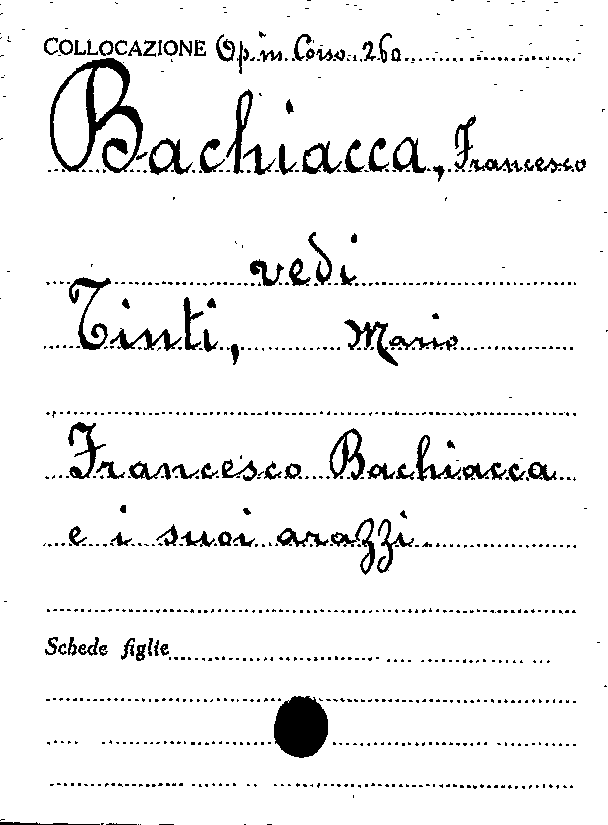 COLLOCAZIONE Op. in Corso 260
Bachiacca, Francesco
vedi
Tinti, Mario
Francesco Bachiacca
e i suoi arazzi
Schede figlie